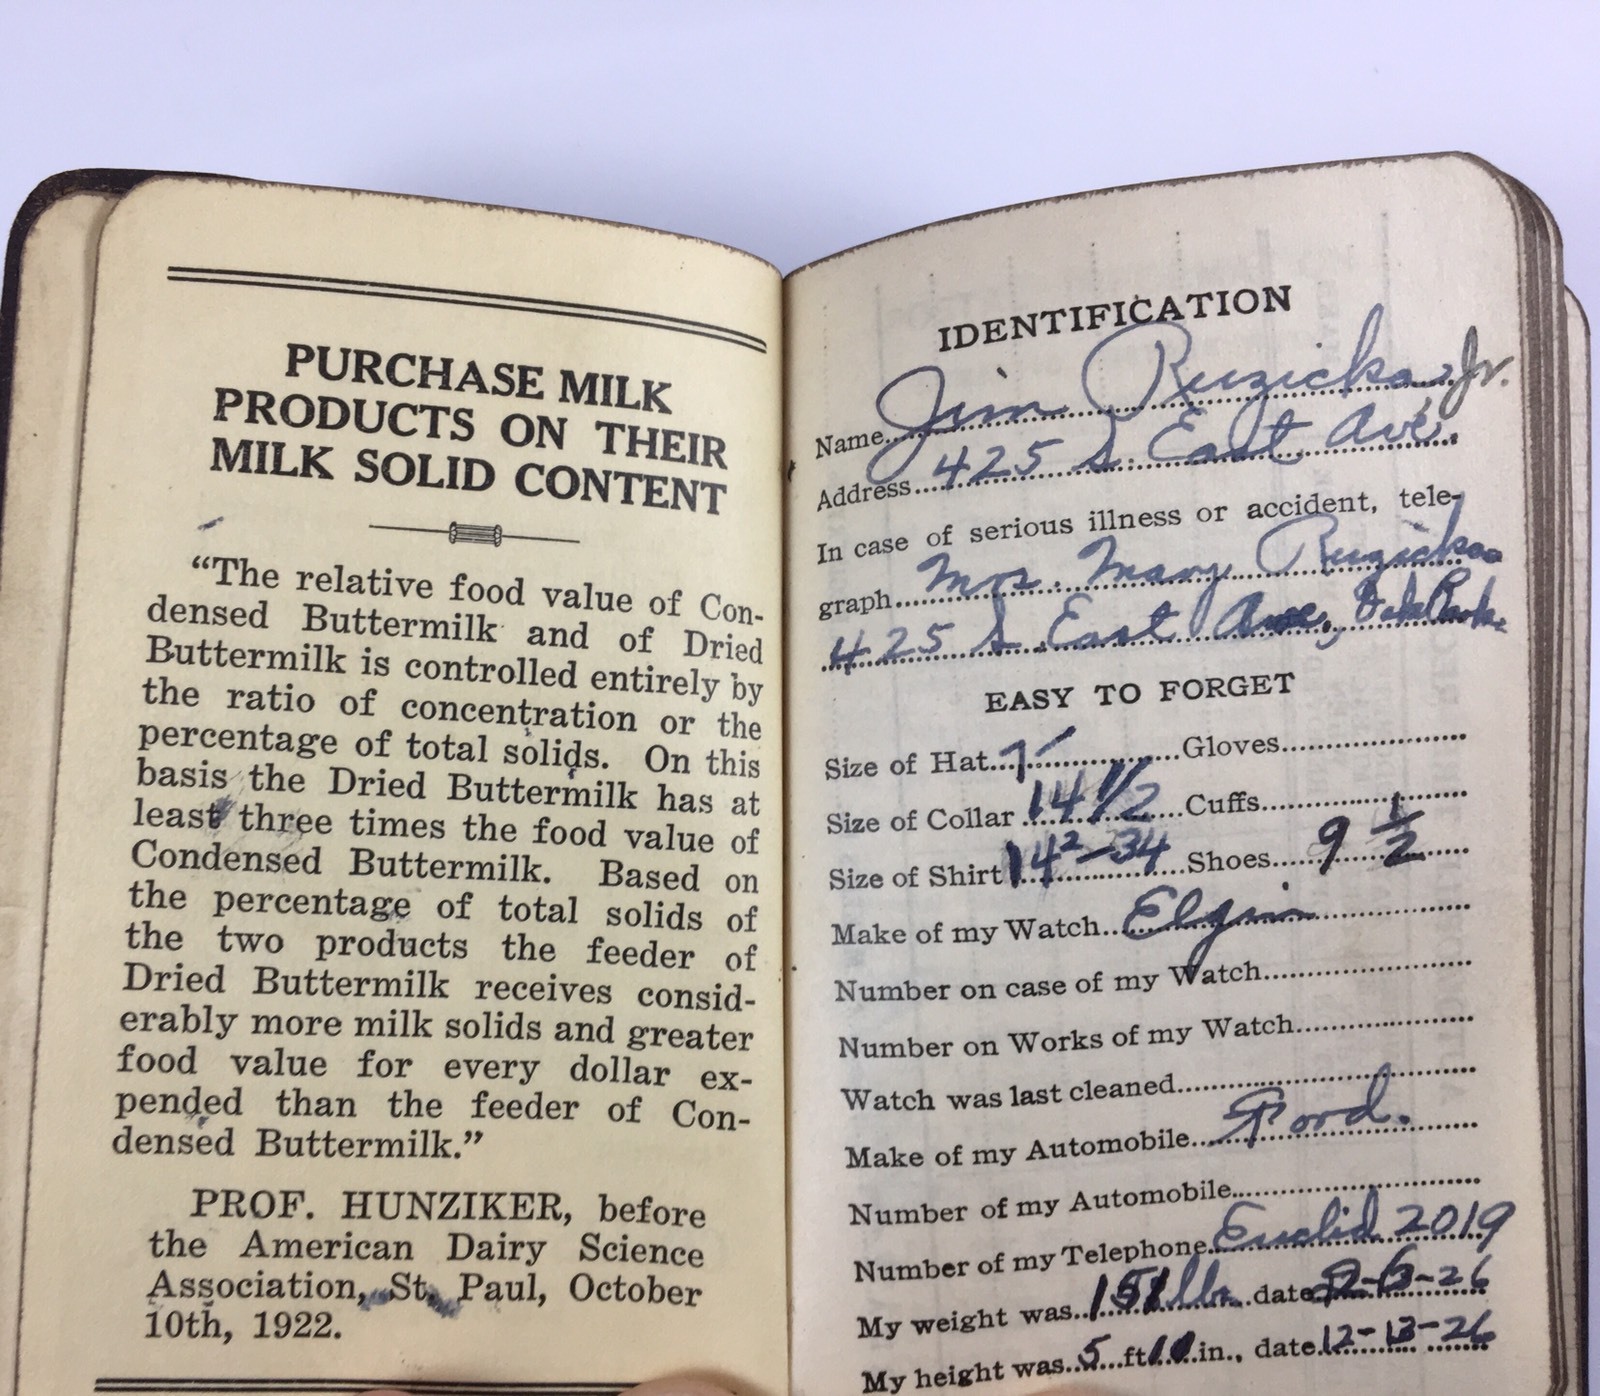 PURCHASE MILK
PRODUCTS ON THEIR
MILK SOLID CONTENT
“The relative food value of Con-
densed Buttermilk and of Dried
Buttermilk is controlled entirely by
the ratio of concentration or the
percentage of total solids. On this
basis the Dried Buttermilk has at
least three times the food value of
Condensed Buttermilk. Based on
the percentage of total solids of
the two products the feeder of
Dried Buttermilk receives consid-
erably more milk solids and greater
food value for every dollar ex-
pended than the feeder of Con-
densed Buttermilk.”
PROF. HUNZIKER, before
the American Dairy Science
Association, St. Paul, October
10th, 1922.
IDENTIFICATION
Name Jim Ruzicka Jr.
Address 425 S. East Ave.
In case of serious illness or accident, tele-
graph Mrs. Mary Ruzicka
425 S. East Ave, Oak Park
EASY TO FORGET
Size of Hat 7 Gloves
Size of Collar 14 1/2 Cuffs
Size of Shirt 14²-34 Shoes 9 1/2
Make of my Watch Elgin
Number on case of my Watch
Number on Works of my Watch
Watch was last cleaned
Make of my Automobile Ford.
Number of my Automobile
Number of my Telephone Euclid 2019
My weight was 151 lb. date -26
My height was 5 ft 10 in., date 12-13-26